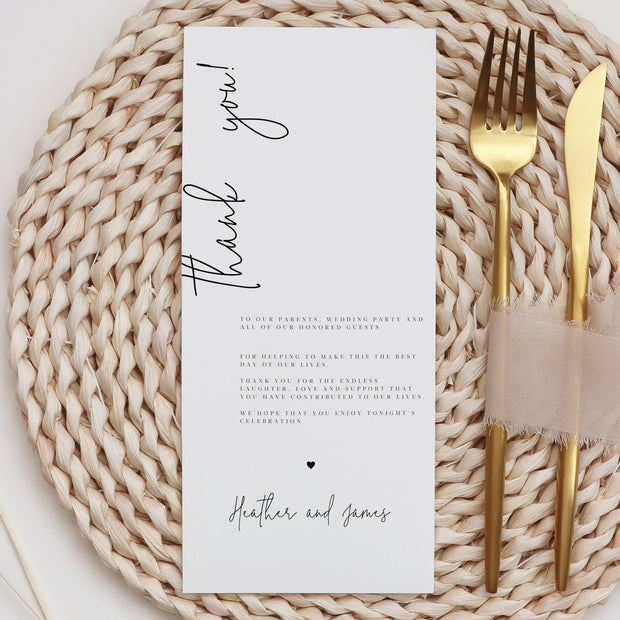 thank you!
TO OUR PARENTS, WEDDING PARTY AND
ALL OF OUR HONORED GUESTS
FOR HELPING TO MAKE THIS THE BEST
DAY OF OUR LIVES.
THANK YOU FOR THE ENDLESS
LAUGHTER, LOVE AND SUPPORT THAT
YOU HAVE CONTRIBUTED TO OUR LIVES.
WE HOPE THAT YOU ENJOY TONIGHT'S
CELEBRATION
Heather and James